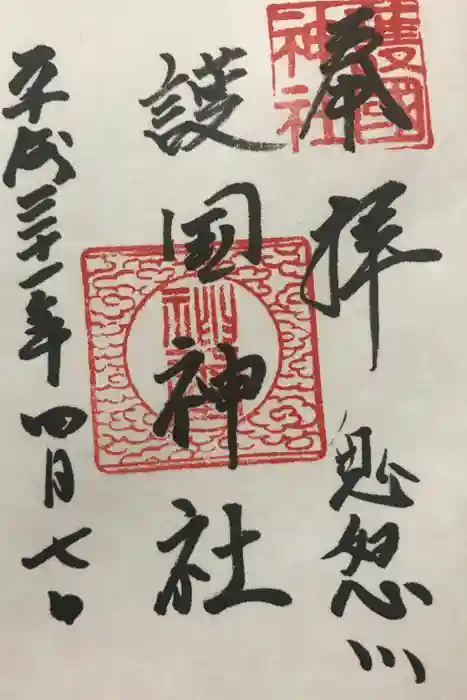 護國
神社
奉拝
鬼怒川
護国神社
平成三十一年四月七日